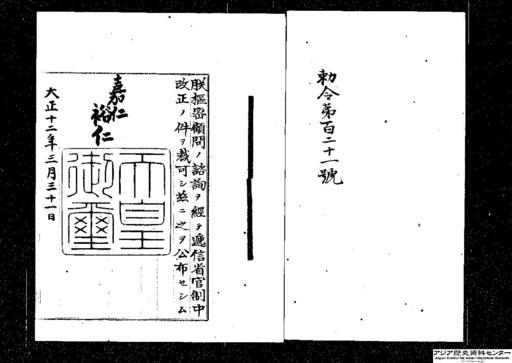 勅令第百二十一號
朕樞密顧問ノ諮詢ヲ經タ遞信省官制中
改正ノ件ヲ裁可シ茲ニ之ヲ公布セシム
嘉仁
裕仁
天皇
御璽
大正十二年三月三十一日
アジア歴史資料センター
Japan Center for Asian Historical Records